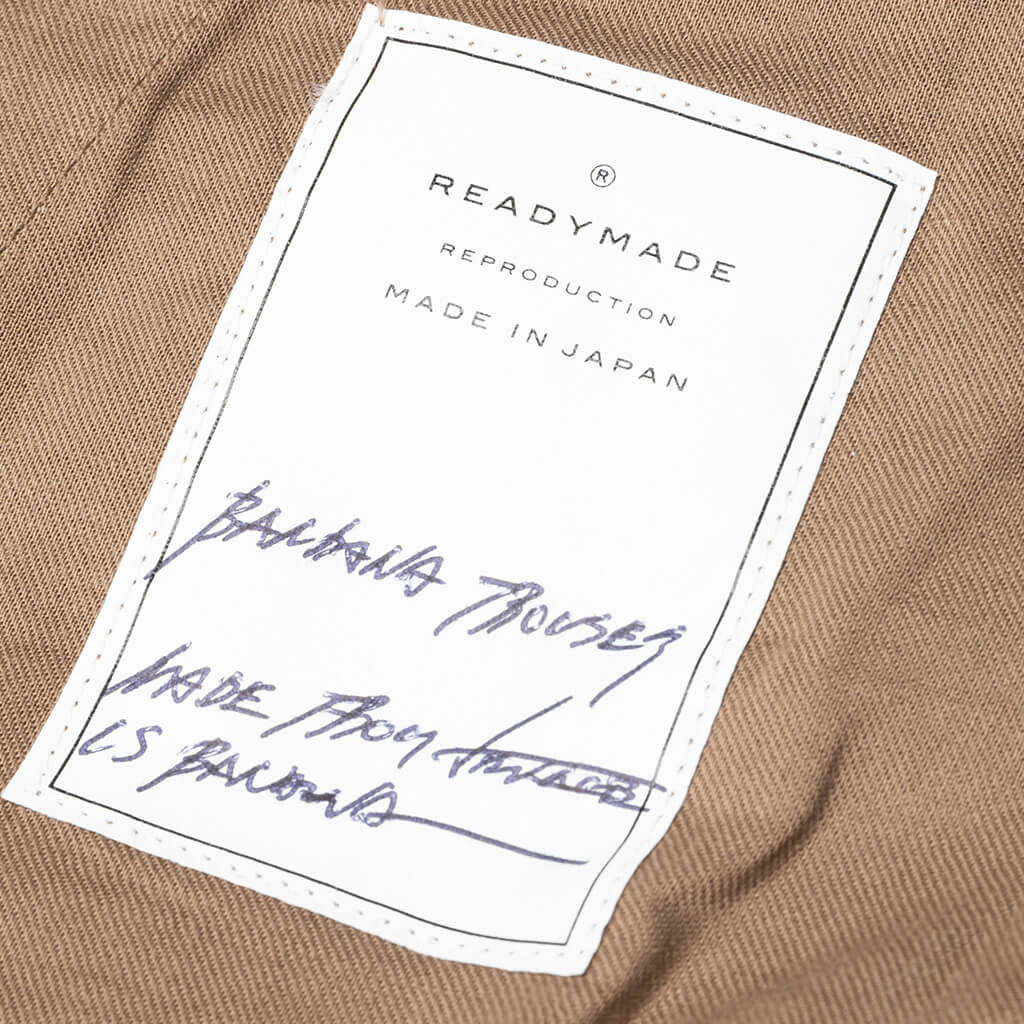 ®
READYMADE
REPRODUCTION
MADE IN JAPAN
BANDANA TROUSERS
MADE FROM VINTAGE
US BANDANA